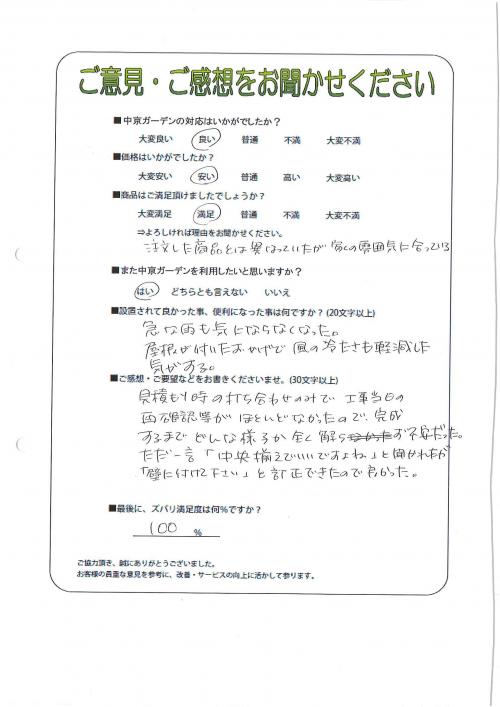 ご意見・ご感想をお聞かせください
■中京ガーデンの対応はいかがでしたか？
大変良い 良い 普通 不満 大変不満
■価格はいかがでしたか？
大変安い 安い 普通 高い 大変高い
■商品はご満足頂けましたでしょうか？
大変満足 満足 普通 不満 大変不満
⇒よろしければ理由をお聞かせください。
注文した商品とは異なっていたが 家の雰囲気に合っている
■また中京ガーデンを利用したいと思いますか？
はい どちらとも言えない いいえ
■設置されて良かった事、便利になった事は何ですか？(20文字以上)
急な雨も気にならなくなった。
屋根が付いたおかげで 風の冷たさも軽減した
気がする。
■ご感想・ご要望などをお書きくださいませ。(30文字以上)
見積もり時の打ち合わせのみで 工事当日の
再確認等が ほとんどなかったので、完成
するまで どんな様るか 全く解らず不安だった。
ただ一言 「中央揃えでいいですよね」と聞かれたが
「壁に付けて下さい」と訂正できたので良かった。
■最後に、ズバリ満足度は何％ですか？
100 ％
ご協力頂き、誠にありがとうございました。
お客様の貴重な意見を参考に、改善・サービスの向上に活かして参ります。